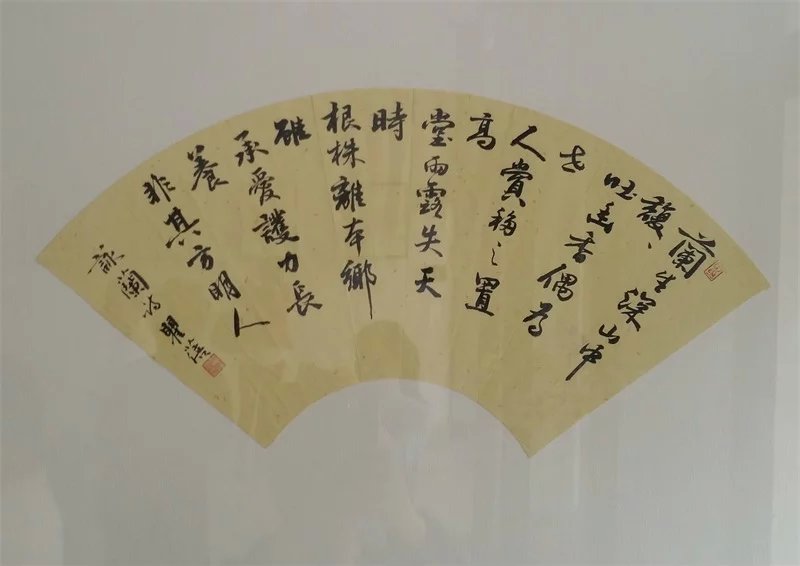 蘭生深山中
馥〻
吐幽香偶為
世
人賞移之置
高
堂雨露失天
時
根株離本鄉
雖
承愛護力長
養
非其方明人
詠蘭詩瞿